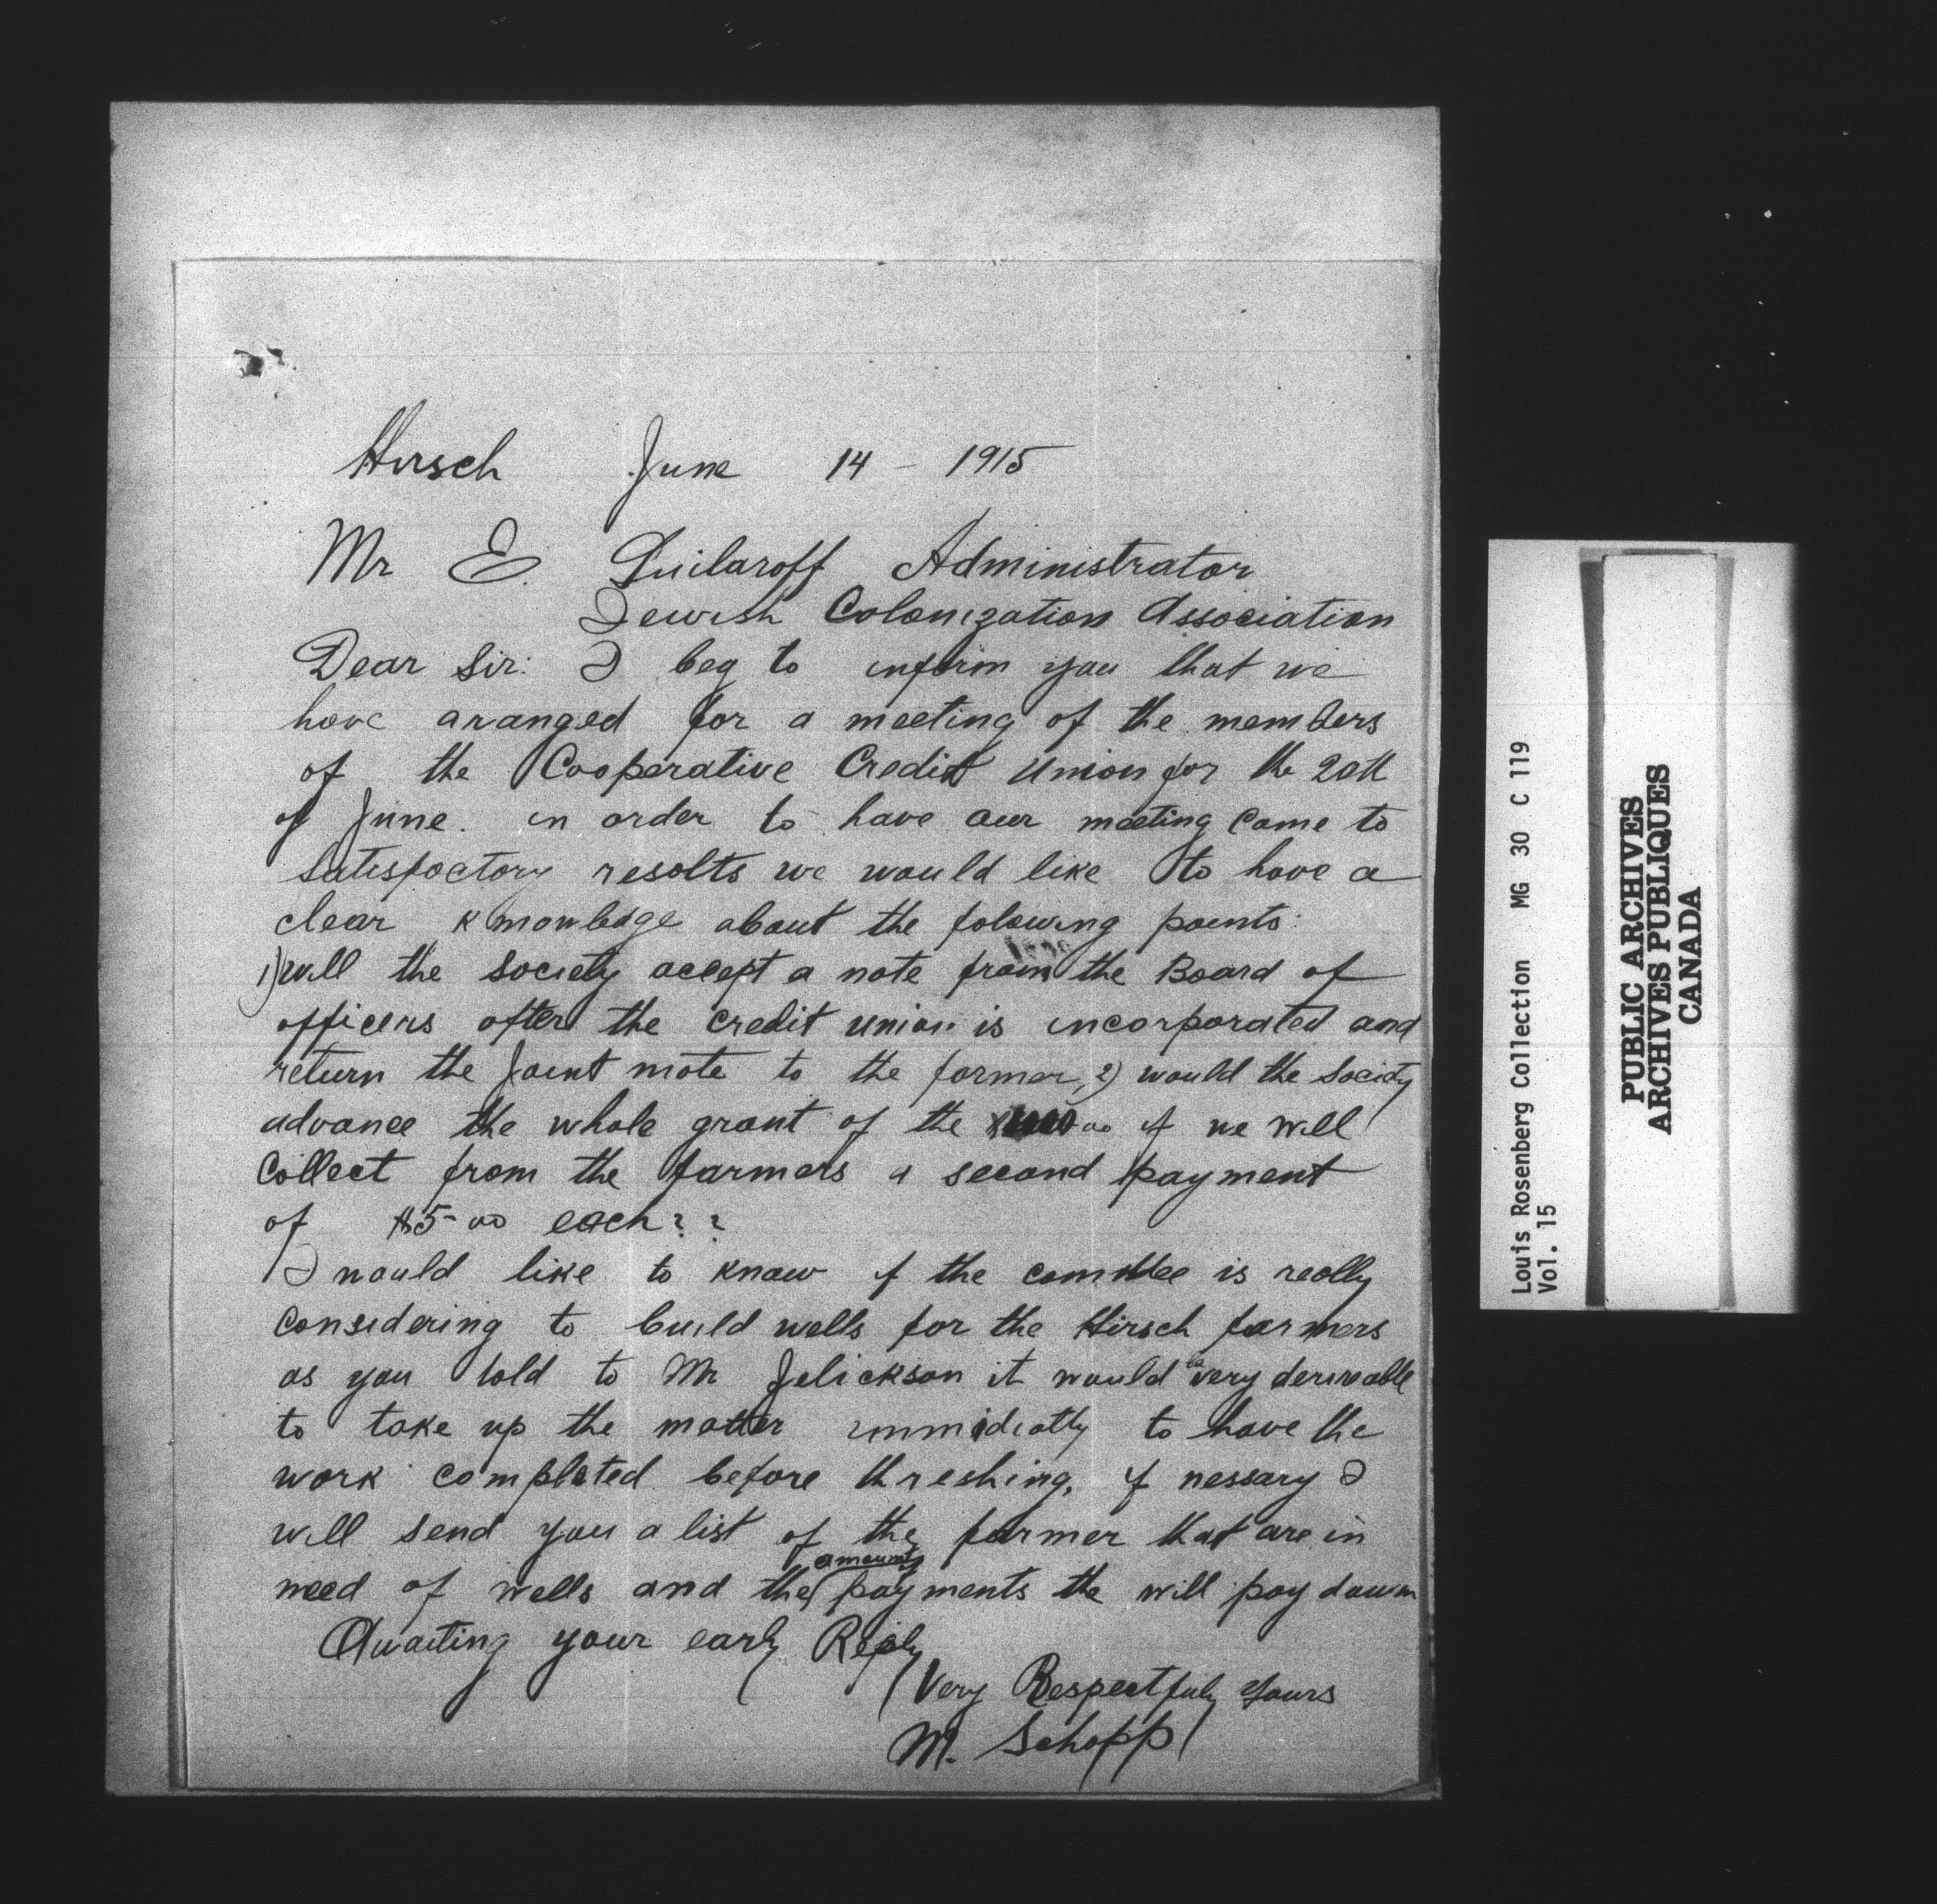 Hirsch June 14 - 1915
Mr E. Administrator
Jewish Colonization Association
Dear Sir: I beg to inform you that we
have aranged for a meeting of the members
of the Cooperative Credit Union for the 20th
of June. in order to have our meeting come to
satisfactory resolts we would like to have a
clear knowledge about the folowing points:
1) will the society accept a note from the Board of
officers after the credit union is incorporated and
return the Joint note to the farmer, 2) would the society
advance the whole grant of the if we will
Collect from the farmers a second payment
of $5-00 each??
I would like to know if the is really
considering to build wells for the Hirsch farmers
as you told to Mr Jelickson it would be very
to take up the matter immidiatly to have the
work completed before threshing, if nessary I
will send you a list of the farmer that are in
need of wells and the amounts payments the will pay down
Awaiting your early Reply
Very Respectfuly Yours
M. Schopp
Louis Rosenberg Collection MG 30 C 119
Vol. 15
PUBLIC ARCHIVES
ARCHIVES PUBLIQUES
CANADA